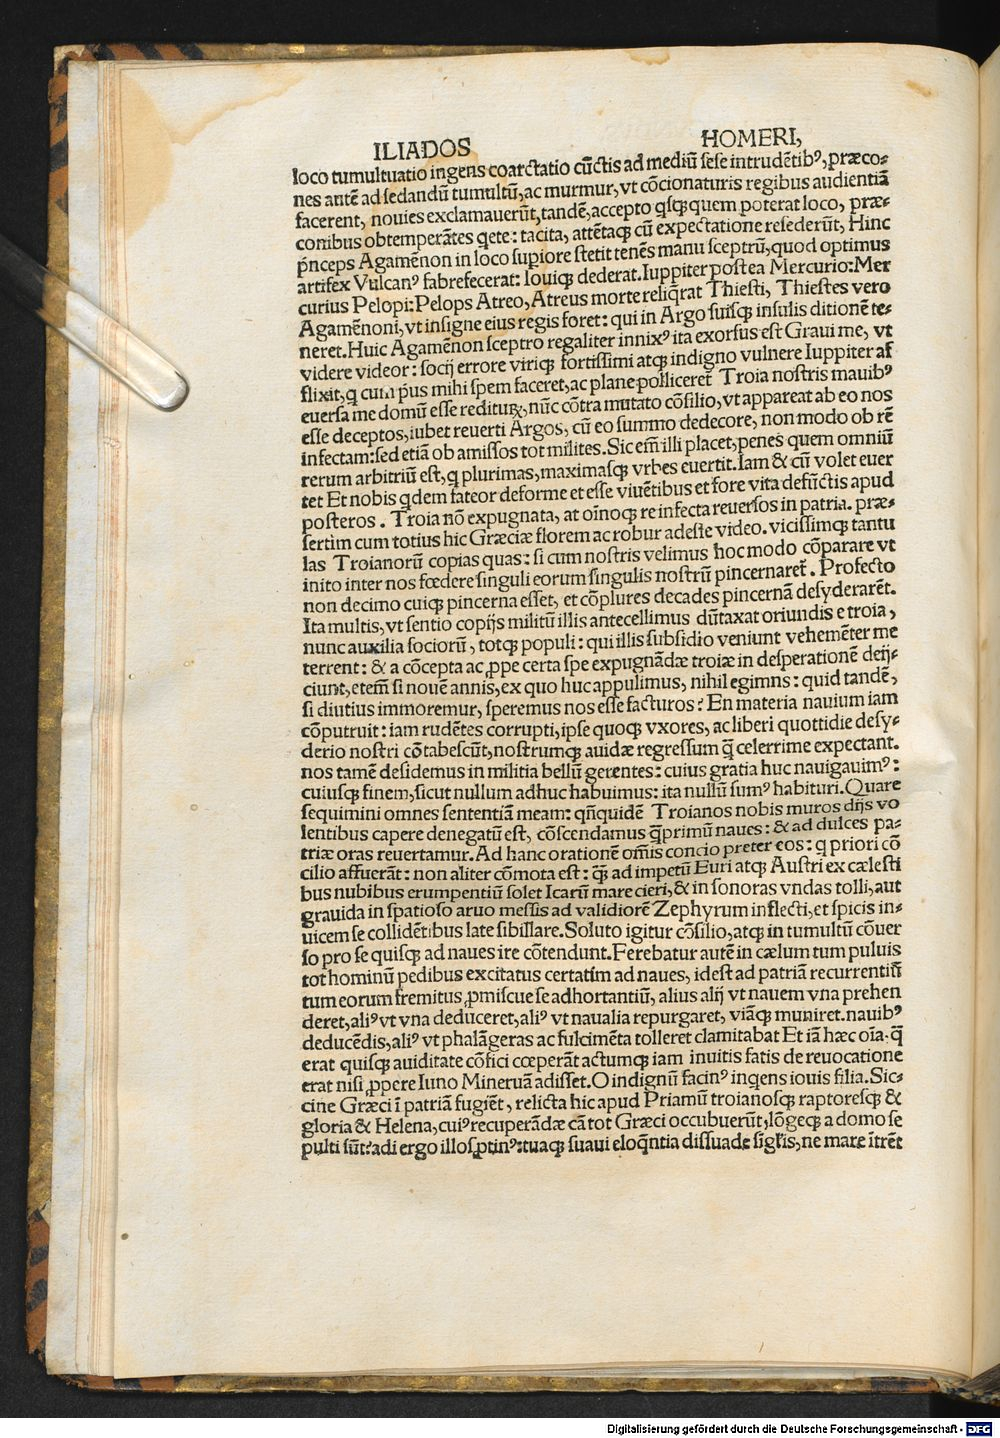 ILIADOS HOMERI,
loco tumultuatio ingens coarctatio cūctis ad mediū ſeſe intrudētibꝰ, præco⸗
nes autē ad ſedandū tumultū, ac murmur, vt cōcionaturis regibus audientiā
facerent, nouies exclamauerūt, tandē, accepto qſqꝫ quem poterat loco, præ⸗
conibus obtemperātes qete: tacita, attētaqꝫ cū expectatione reſederūt, Hinc
p̄nceps Agamēnon in loco ſupiore ſtetit tenēs manu ſceptrū, quod optimus
artifex Vulcanꝰ fabrefecerat: Iouiqꝫ dederat. Iuppiter poſtea Mercurio: Mer
curius Pelopi: Pelops Atreo, Atreus morte reliq̄rat Thieſti, Thieſtes vero
Agamēnoni, vt inſigne eius regis foret: qui in Argo ſuiſqꝫ inſulis ditionē te⸗
neret. Huic Agamēnon ſceptro regaliter innixꝰ ita exorſus eſt Graui me, vt
videre videor: ſocij errore viriqꝫ fortiſſimi atqꝫ indigno vulnere Iuppiter af
flixit, q cum p̄us mihi ſpem faceret, ac plane polliceret̄ Troia noſtris mauibꝰ
euerſa me domū eſſe rediturꝝ, nūc cōtra mutato cōſilio, vt appareat ab eo nos
eſſe deceptos, iubet reuerti Argos, cū eo ſummo dedecore, non modo ob rē
infectam: ſed etiā ob amiſſos tot milites. Sic em̄ illi placet, penes quem omniū
rerum arbitriū eſt, q plurimas, maximaſqꝫ vrbes euertit. Iam & cū volet euer
tet Et nobis q̄dem fateor deforme et eſſe viuētibus et fore vita defūctis apud
poſteros. Troia nō expugnata, at oīnoqꝫ re infecta reuerſos in patria. præ⸗
ſertim cum totius hic Græciæ florem ac robur adeſſe video. viciſſimqꝫ tantu
las Troianorū copias quas: ſi cum noſtris velimus hoc modo cōparare vt
inito inter nos fœdere ſinguli eorum ſingulis noſtrū pincernaret̄. Profecto
non decimo cuiqꝫ pincerna eſſet, et cōplures decades pincernā deſyderarēt.
Ita multis, vt ſentio copijs militū illis antecellimus dūtaxat oriundis e troia,
nunc auxilia ſociorū, totqꝫ populi: qui illis ſubſidio veniunt vehemēter me
terrent: & a cōcepta ac ꝓpe certa ſpe expugnādæ troiæ in deſperationē deij⸗
ciunt, etem̄ ſi nouē annis, ex quo huc appulimus, nihil egimns: quid tandē,
ſi diutius immoremur, ſperemus nos eſſe facturos? En materia nauium iam
cōputruit: iam rudētes corrupti, ipſe quoqꝫ vxores, ac liberi quottidie deſy⸗
derio noſtri cōtabeſcūt, noſtrumqꝫ auidæ regreſſum q̄ celerrime expectant.
nos tamē deſidemus in militia bellū gerentes: cuius gratia huc nauigauimꝰ:
cuiuſqꝫ finem, ſicut nullum adhuc habuimus: ita nullū ſumꝰ habituri. Quare
ſequimini omnes ſententiā meam: qn̄quidē Troianos nobis muros dijs vo
lentibus capere denegatū eſt, cōſcendamus q̄primū naues: & ad dulces pa⸗
triæ oras reuertamur. Ad hanc orationē om̄is concio preter eos: q priori cō
cilio affuerāt: non aliter cōmota eſt: q̄ ad impetū Euri atqꝫ Auſtri ex cæleſti
bus nubibus erumpentiū ſolet Icarū mare cieri, & in ſonoras vndas tolli, aut
grauida in ſpatioſo aruo meſſis ad validiorē Zephyrum inflecti, et ſpicis in⸗
uicem ſe collidētibus late ſibillare. Soluto igitur cōſilio, atqꝫ in tumultū cōuer
ſo pro ſe quiſqꝫ ad naues ire cōtendunt. Ferebatur autē in cælum tum puluis
tot hominū pedibus excitatus certatim ad naues, ideſt ad patriā recurrentiū
tum eorum fremitus ꝓmiſcue ſe adhortantiū, alius alij vt nauem vna prehen
deret, aliꝰ vt vna deduceret, aliꝰ vt naualia repurgaret, viāqꝫ muniret. nauibꝰ
deducēdis, aliꝰ vt phalāgeras ac fulcimēta tolleret clamitabat Et iā hæc oīa. q̄
erat quiſqꝫ auiditate cōfici cœperāt actumqꝫ iam inuitis fatis de reuocatione
erat niſi ꝓpere Iuno Mineruā adiſſet. O indignū facinꝰ inqens iouis filia. Sic⸗
cine Græci ī patriā fugiēt, relicta hic apud Priamū troianoſqꝫ raptoreſqꝫ &
gloria & Helena, cuiꝰ recuperādæ cā tot Græci occubuerūt, lōgeqꝫ a domo ſe
pulti ſūt? adi ergo illos ꝓtinꝰ: tuaqꝫ ſuaui eloq̄ntia diſſuade ſiglis, ne mare ītrēt
Digitalisierung gefördert durch die Deutsche Forschungsgemeinschaft - DFG